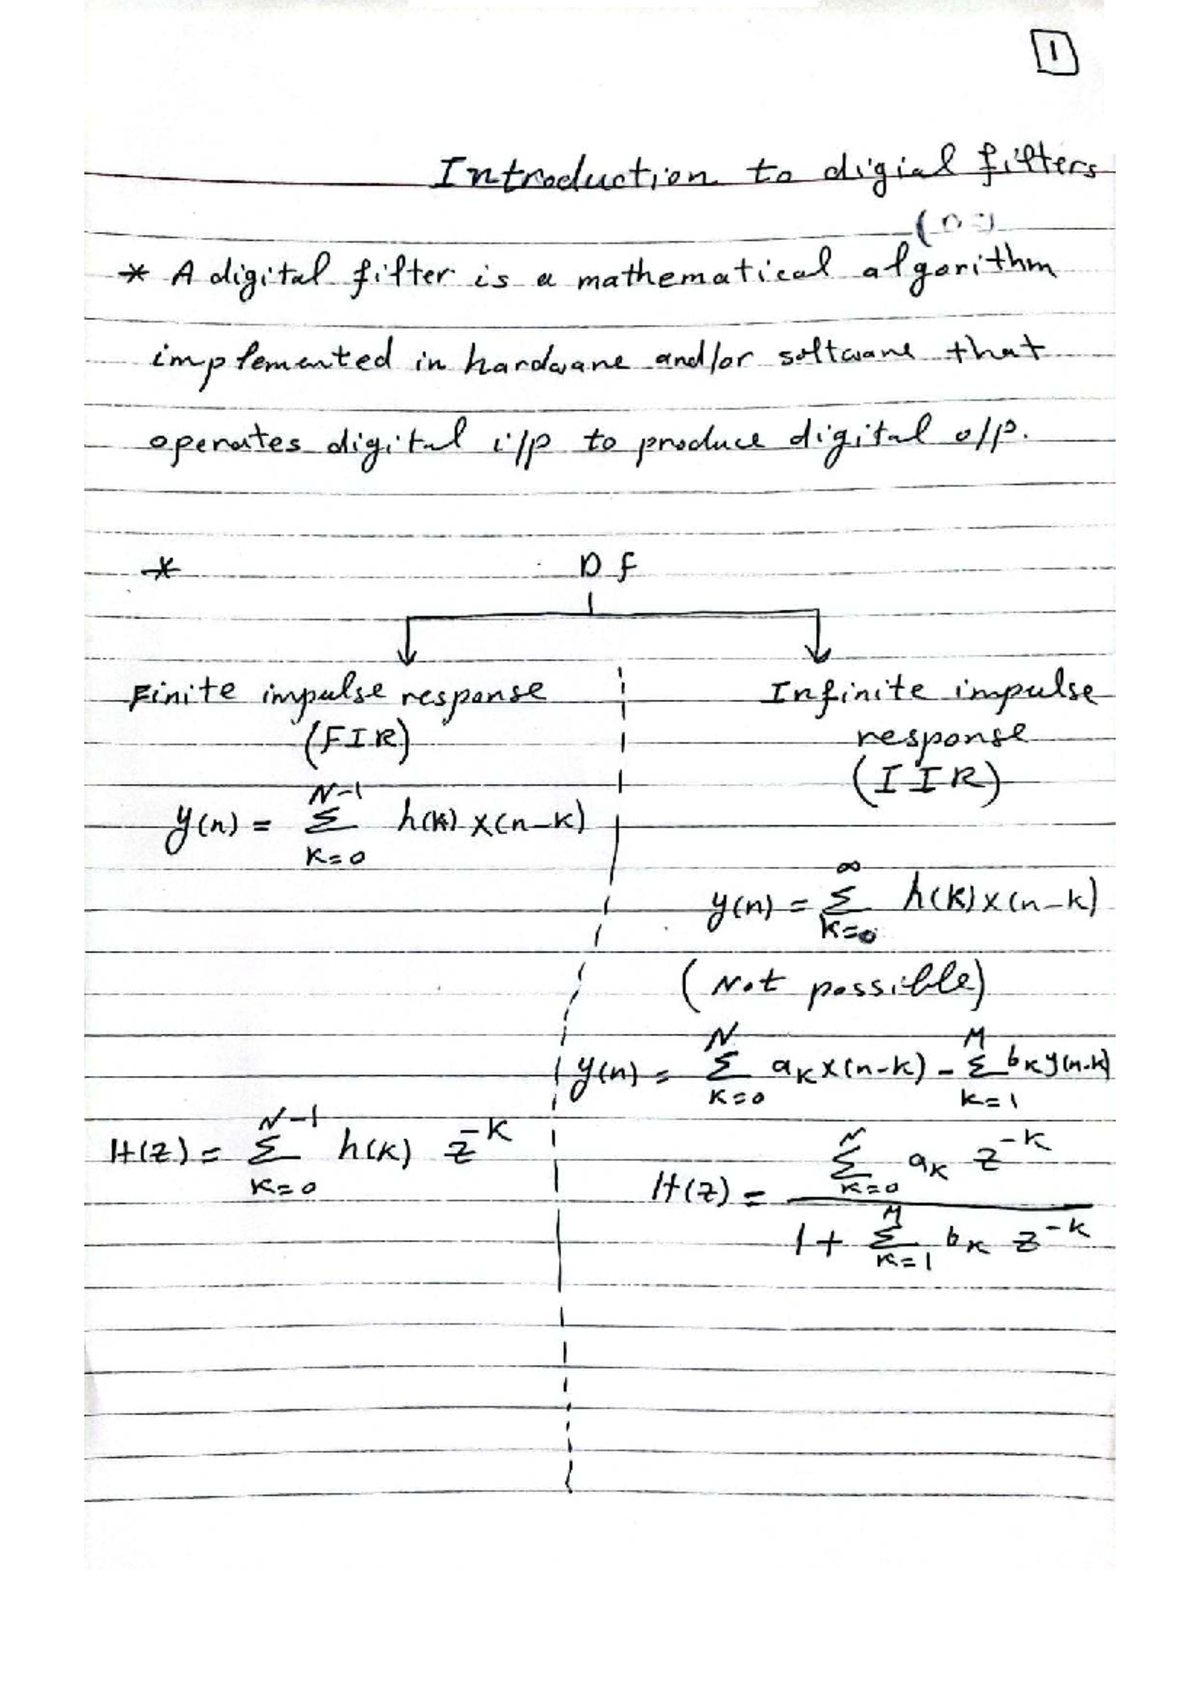 1
Introduction to digial filters
* A digital filter is a mathematical algorithm
implemented in hardware and/or software that
operates digital i/p to produce digital o/p.
* D F
Finite impulse response
(FIR)
y(n) = Σ_{K=0}^{N-1} h(k) x(n-k)
H(z) = Σ_{K=0}^{N-1} h(k) z^{-k}
Infinite impulse
response
(IIR)
y(n) = Σ_{K=0}^{∞} h(k) x(n-k)
(Not possible)
y(n) = Σ_{K=0}^{N} a_k x(n-k) - Σ_{k=1}^{M} b_k y(n-k)
H(z) = Σ_{K=0}^{N} a_k z^{-k} / 1 + Σ_{K=1}^{M} b_k z^{-k}